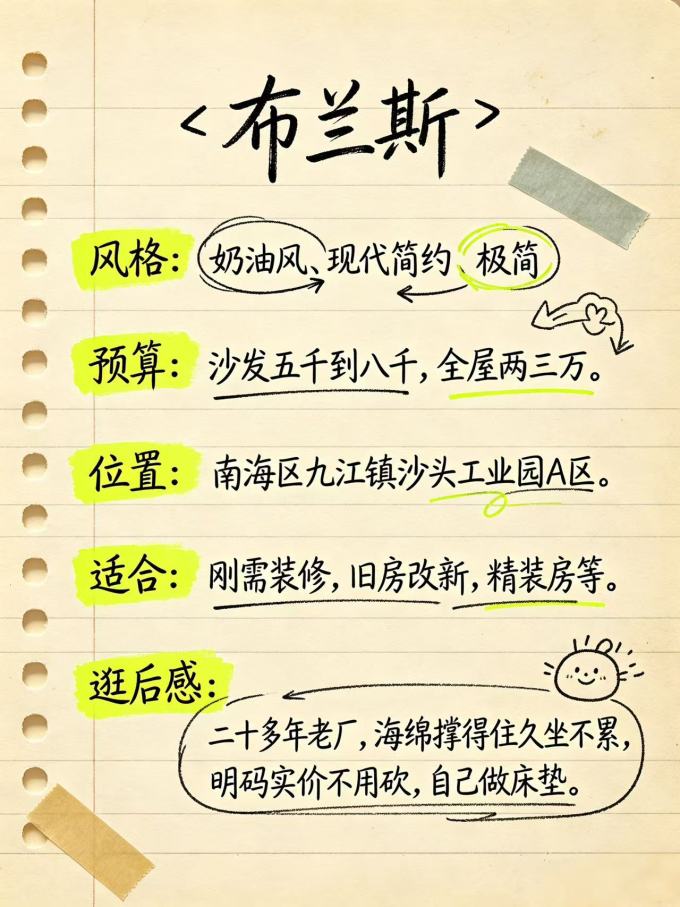 <布兰斯>
风格：奶油风、现代简约、极简
预算：沙发五千到八千，全屋两三万。
位置：南海区九江镇沙头工业园A区。
适合：刚需装修，旧房改新，精装房等。
逛后感：
二十多年老厂，海绵撑得住久坐不累，
明码实价不用砍，自己做床垫。